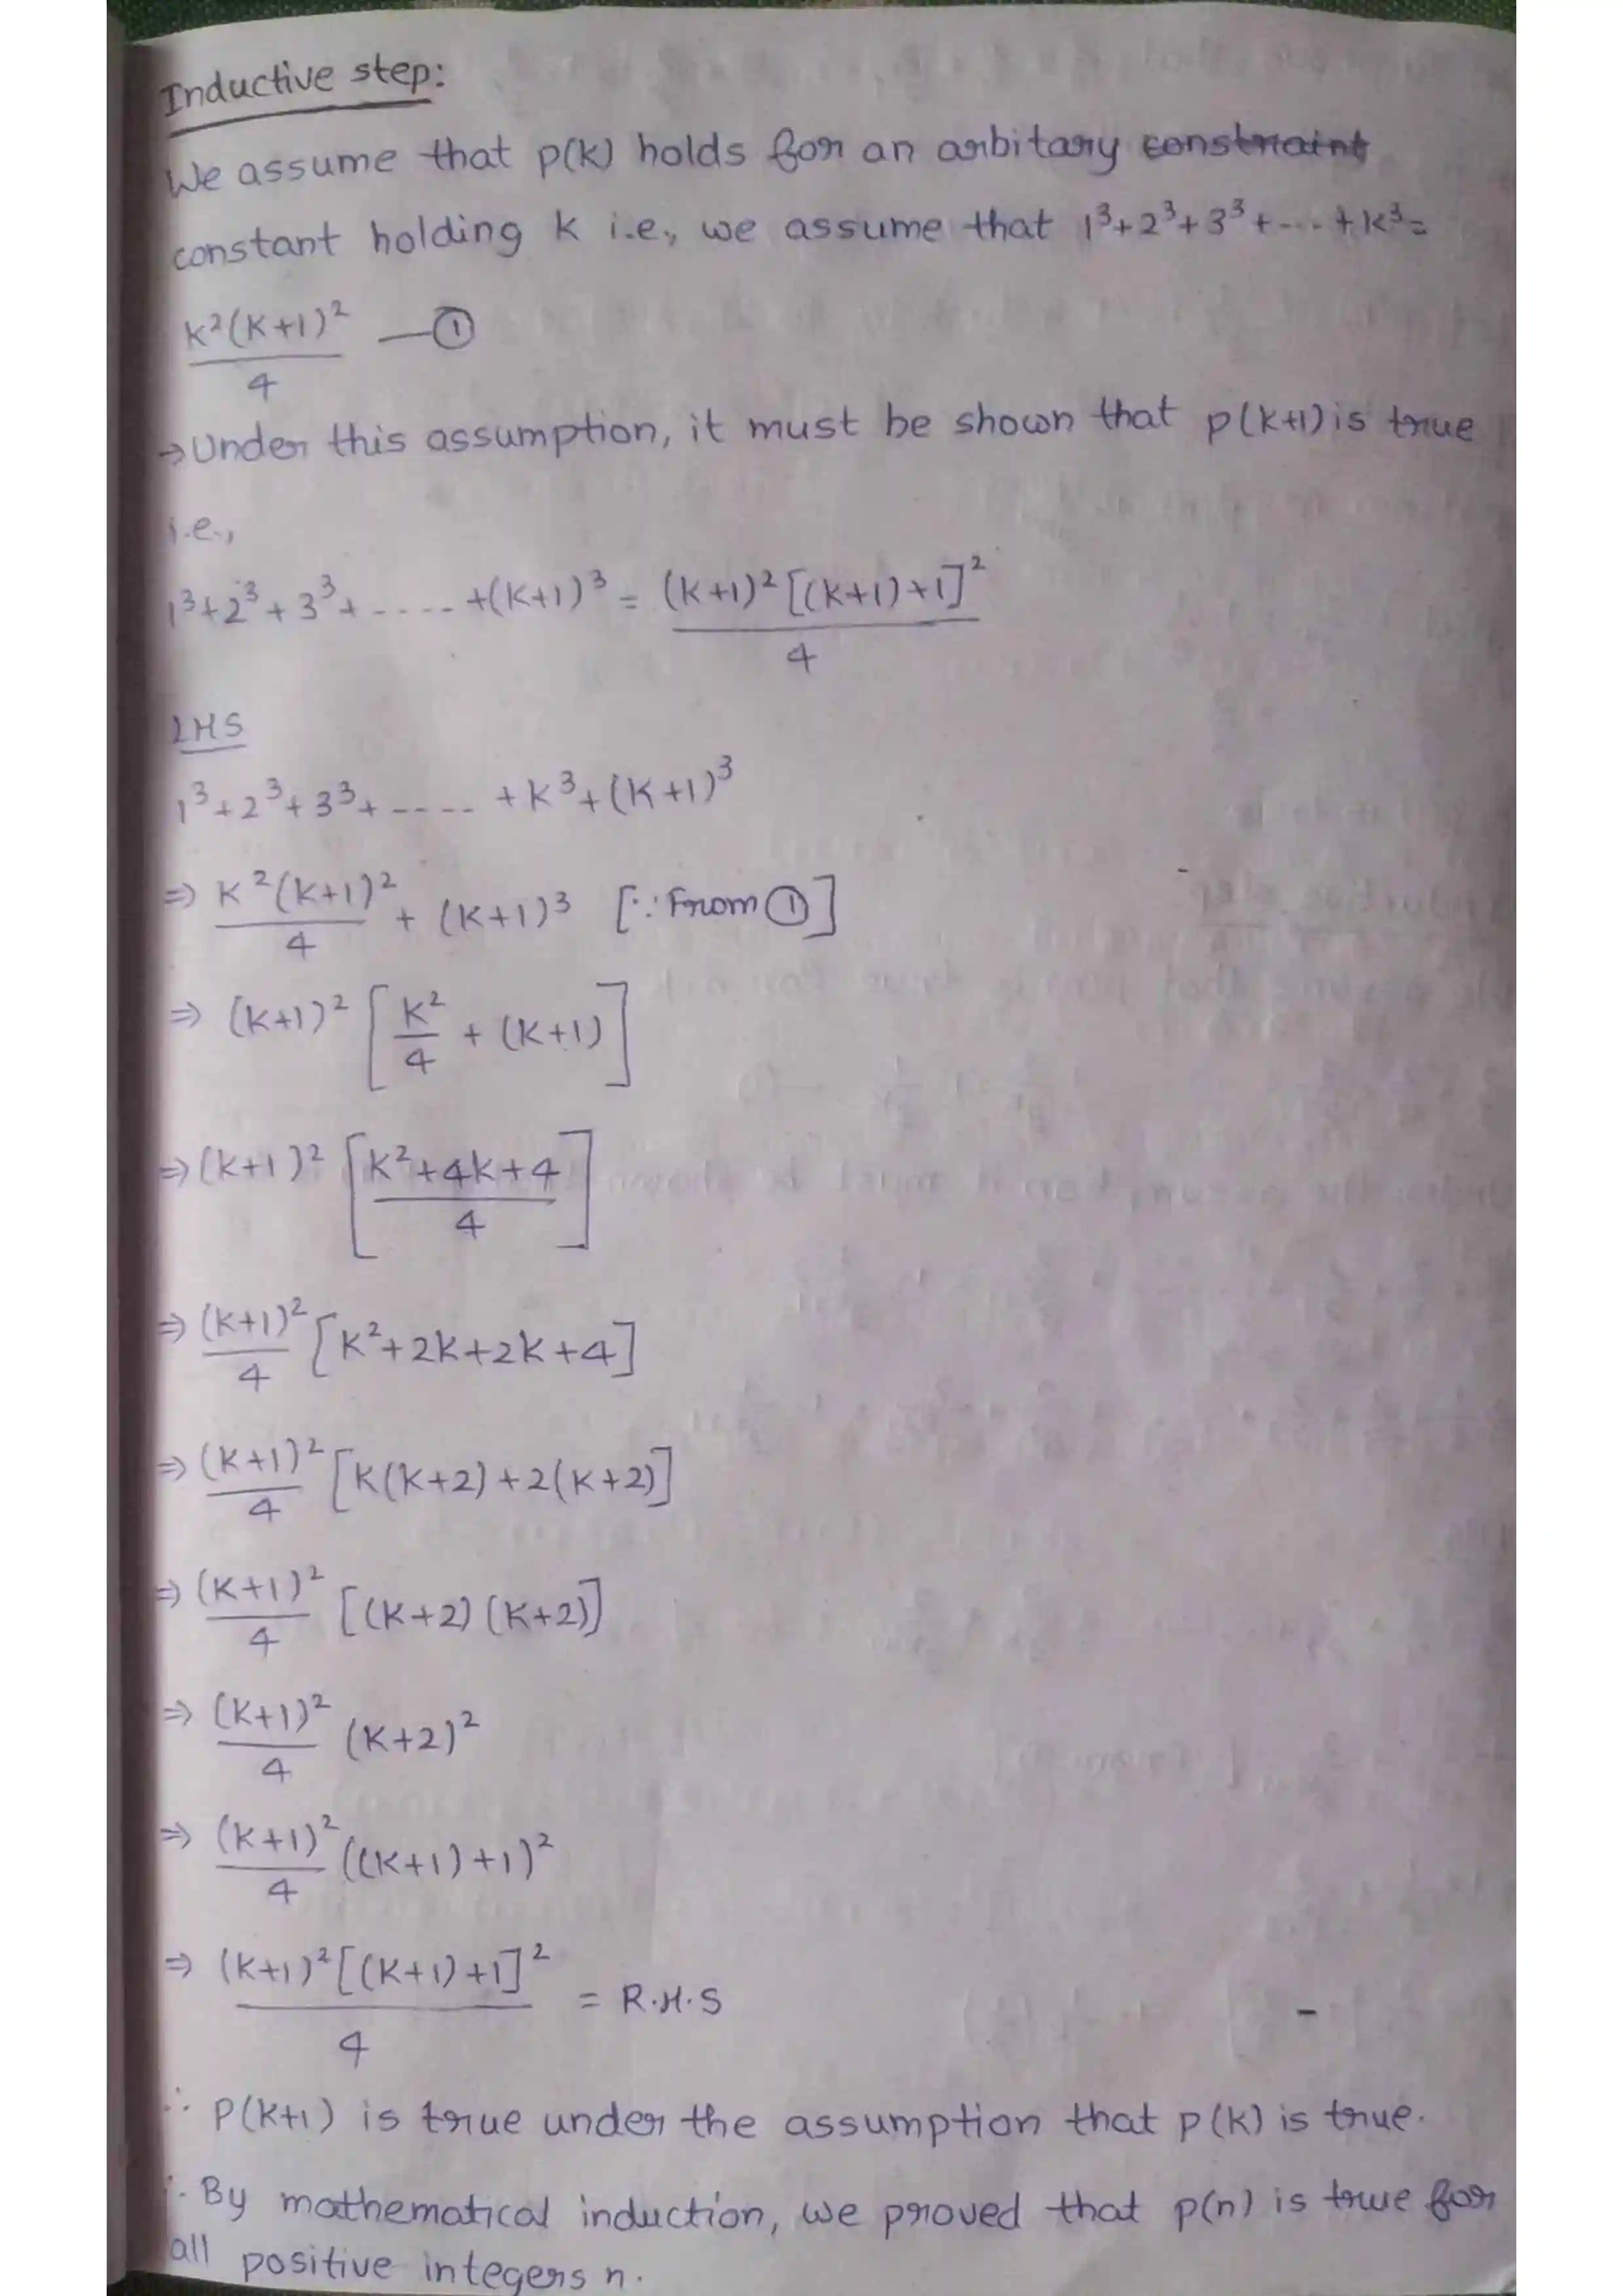 Inductive step:
We assume that p(k) holds for an arbitary constraint
constant holding k i.e., we assume that 1³+2³+3³+---+k³=
k²(k+1)²/4 —①
→Under this assumption, it must be shown that p(k+1) is true
i.e.,
1³+2³+3³+-----+(k+1)³ = (k+1)²[(k+1)+1]²/4
LHS
1³+2³+3³+---- +k³+(k+1)³
⇒ k²(k+1)²/4 + (k+1)³ [∵From①]
⇒ (k+1)² [k²/4 + (k+1)]
⇒ (k+1)² [k²+4k+4/4]
⇒ (k+1)²/4 [k²+2k+2k+4]
⇒ (k+1)²/4 [k(k+2)+2(k+2)]
⇒ (k+1)²/4 [(k+2)(k+2)]
⇒ (k+1)²/4 (k+2)²
⇒ (k+1)²/4 ((k+1)+1)²
⇒ (k+1)²[(k+1)+1]²/4 = R.H.S
∴ P(k+1) is true under the assumption that p(k) is true.
∴ By mathematical induction, we proved that p(n) is true for
all positive integers n.